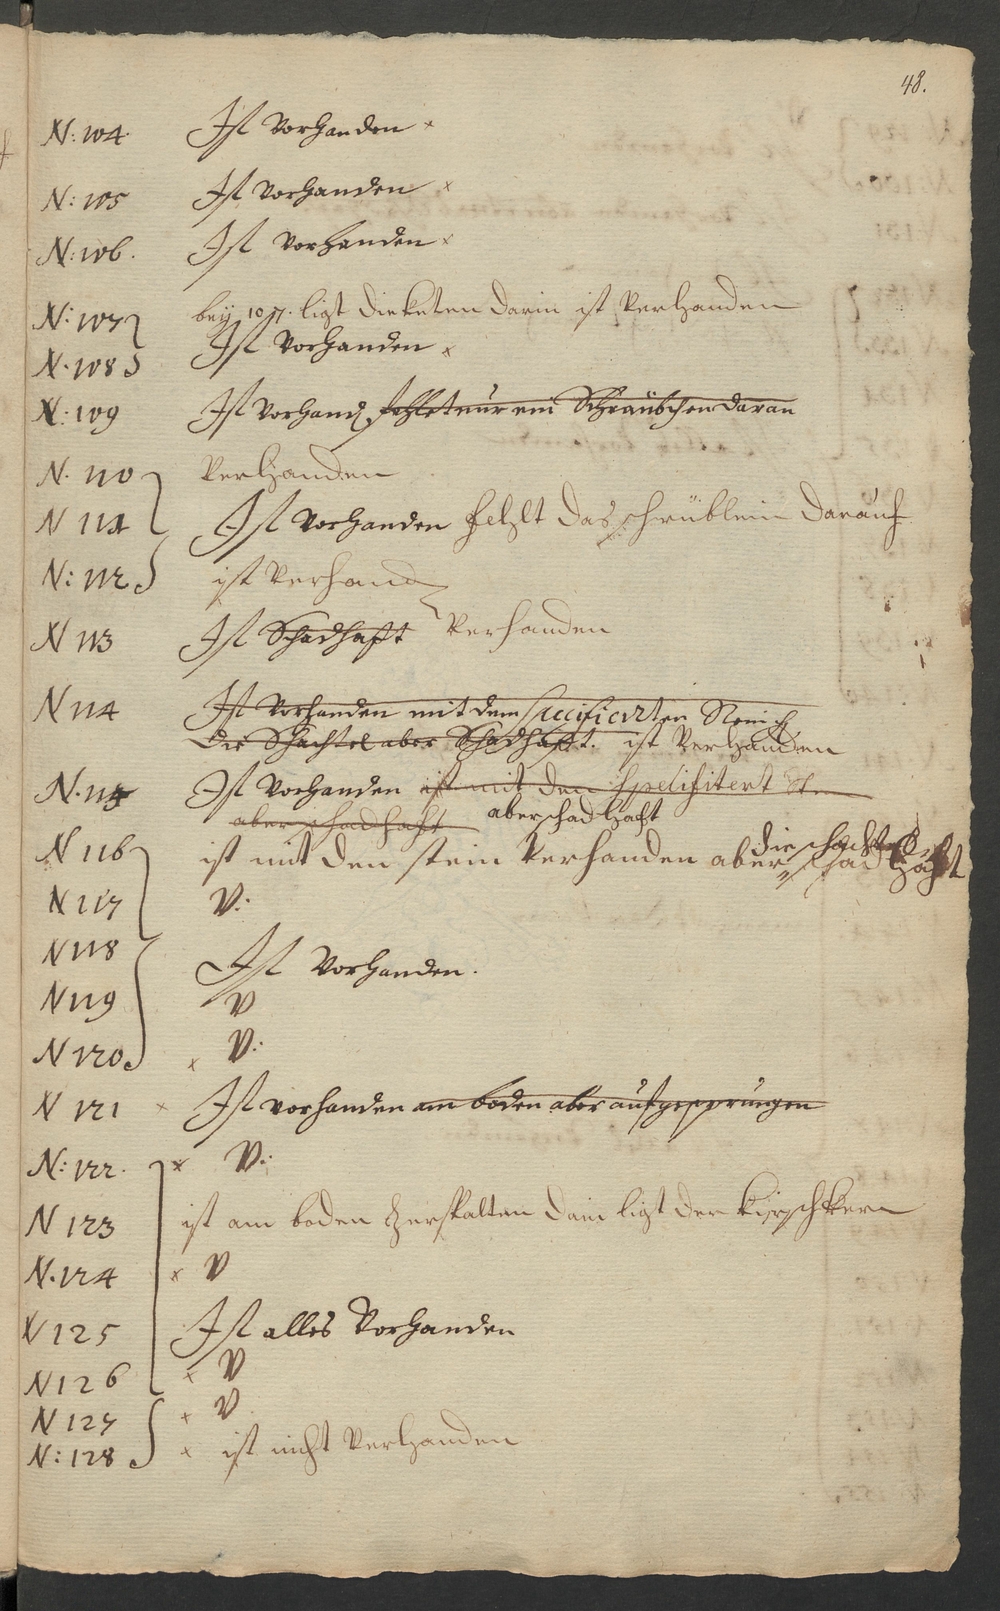 48.
N: 104. Ist Vorhanden ×
N: 105 Ist Vorhanden ×
N: 106. Ist Vorhanden ×
N: 107 bey 1017. ligt die keten darin ist Verhanden
N. 108 Ist Vorhanden ×
N: 109 Ist Vorhand. fehlet nur ein Schraübchen daran
N. 110 Verhanden
N 111 Ist Vorhanden fehlt das schrüblein darauf
N: 112 ist Verhand
N 113 Ist Schadhafft Verhanden
N 114 Ist Vorhanden mit dem Specificirten
Die Schachtel aber Schadhafft. ist Verhanden
N. 115 Ist Vorhanden ist mit den Spelifitert
aber schadhafft aber schadhafft
die schachtel
N 116 ist mit den stein Verhanden aber schadhafft
N 117 V:
N 118 Ist Vorhanden.
N 119 V
N 120 × V:
N 121 × Ist vorhanden am boden aber aufgesprungen
N: 122. × V:
N 123 ist am boden zerspalten darin ligt der kirschkern
N. 124 × V
N 125 Ist alles Vorhanden
N 126 × V
N 127 × V
N: 128 × ist nicht Verhanden